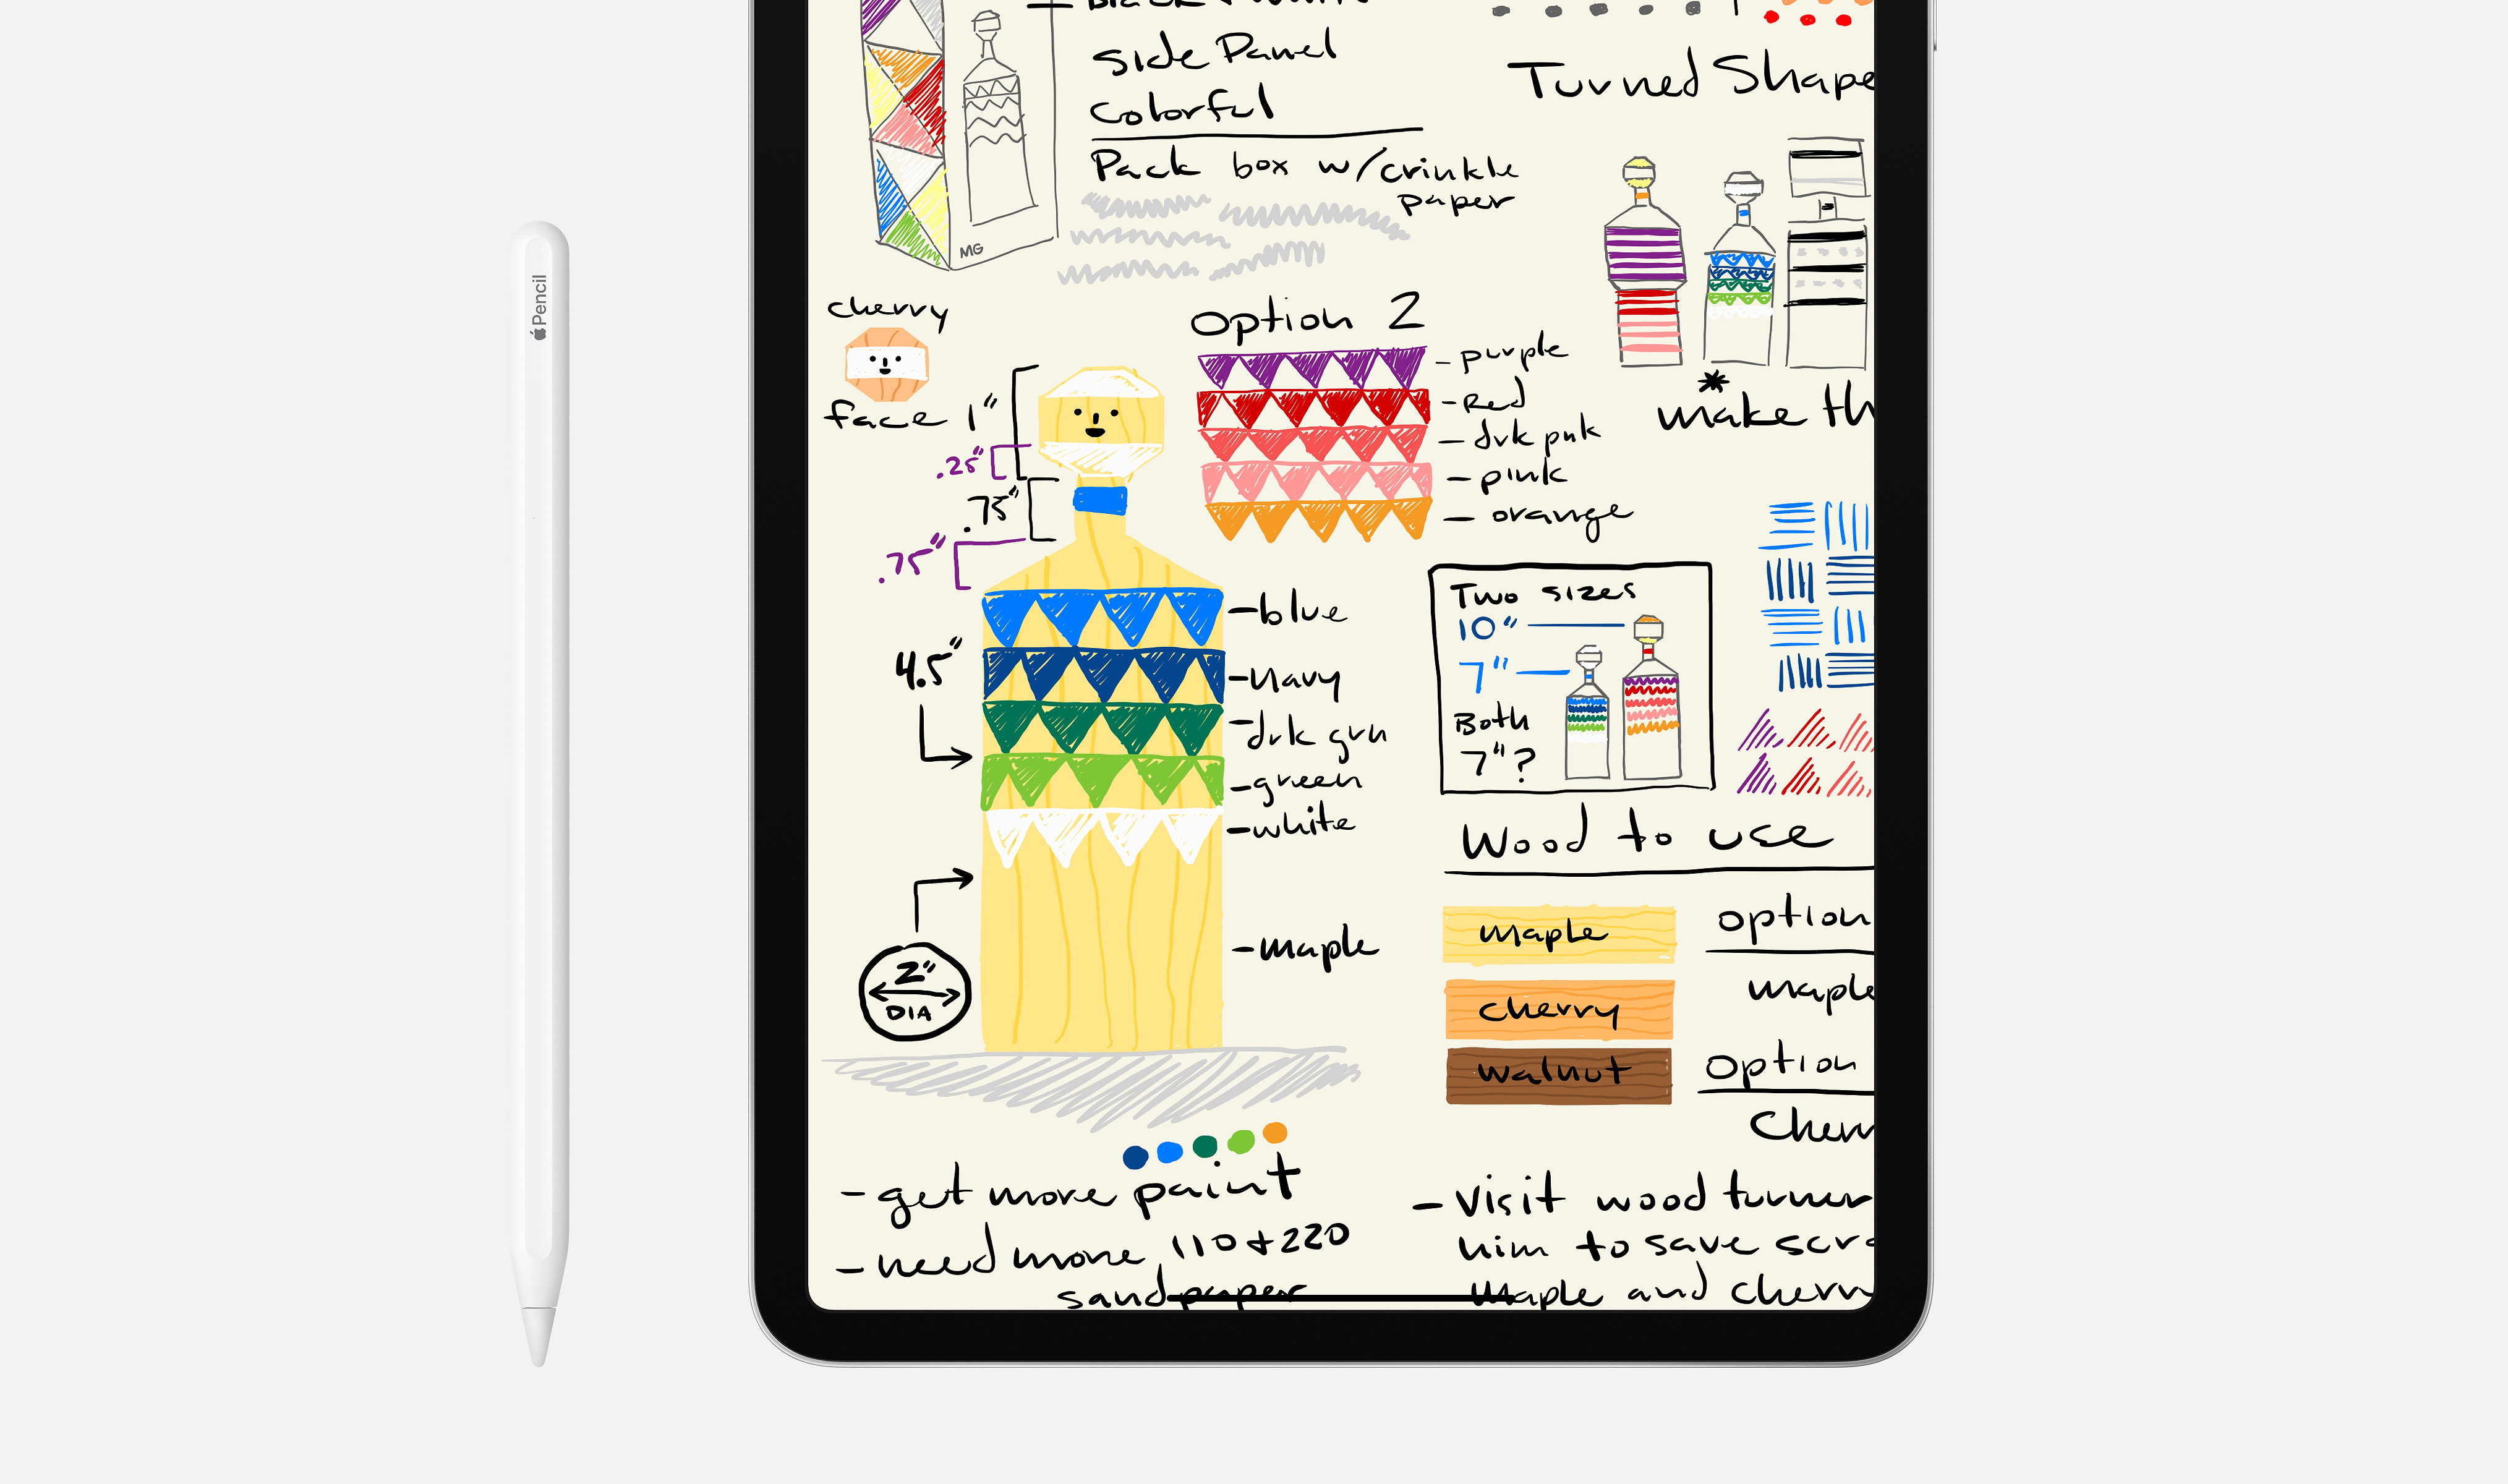 Pencil
Side Panel
Colorful
Pack box w/crinkle
paper
MG
Turned Shape
cherry
face
1"
.25"
.75"
.75"
4.5"
2"
DIA
Option 2
- purple
- Red
- drk pnk
- pink
- orange
make th
- blue
- Navy
- drk grn
- green
- white
- maple
Two sizes
10"
7"
Both
7"?
Wood to use
maple
cherry
walnut
option
maple
option
Cherr
- get more paint
- need more 110 + 220
sandpaper
- Visit wood turner
him to save scr
maple and cherr